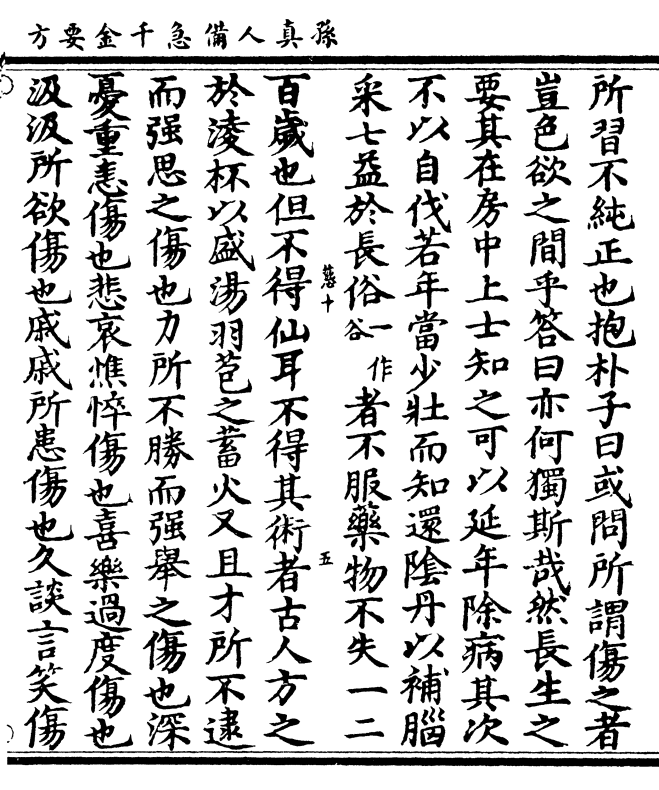 孫真人備急千金要方
所習不純正也抱朴子曰或問所謂傷之者
豈色欲之間乎答曰亦何獨斯哉然長生之
要其在房中上士知之可以延年除病其次
不以自伐若年當少壯而知還陰丹以補腦
采七益於長俗一作谷者不服藥物不失一二
百歲也但不得仙耳不得其術者古人方之
於淩杯以盛湯羽苞之蓄火又且才所不逮
而强思之傷也力所不勝而强舉之傷也深
憂重恚傷也悲哀憔悴傷也喜樂過度傷也
汲汲所欲傷也戚戚所患傷也久談言笑傷
十
五